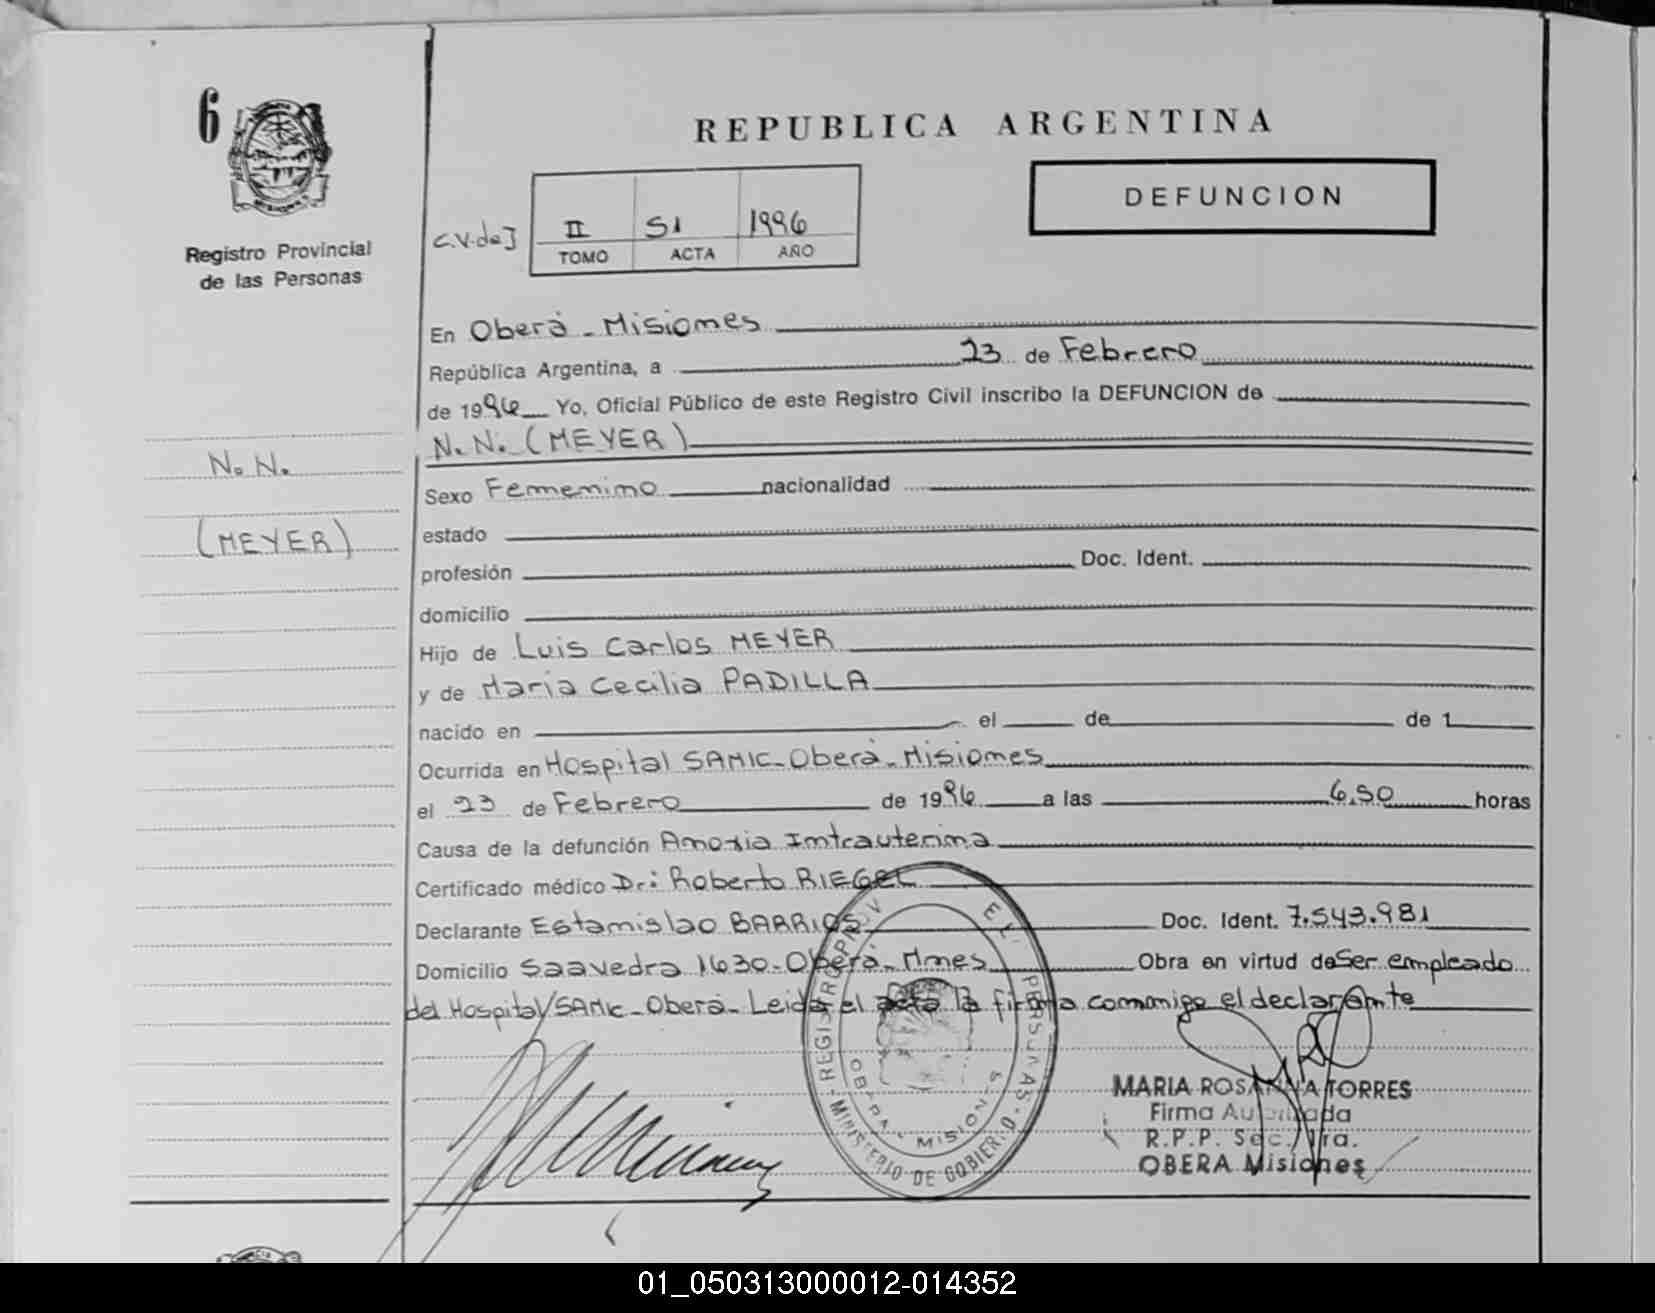 6
REPUBLICA ARGENTINA
DEFUNCION
C.V.de J
II S1 1996
TOMO ACTA AÑO
Registro Provincial
de las Personas
En Oberá - Misiones
República Argentina, a 23 de Febrero
de 1996 Yo, Oficial Público de este Registro Civil inscribo la DEFUNCION de
N.N. (MEYER)
N.N.
(MEYER)
Sexo Femenino nacionalidad
estado
profesión Doc. Ident.
domicilio
Hijo de Luis Carlos MEYER
y de Maria Cecilia PADILLA
nacido en el de de 1
Ocurrida en Hospital SAMIC - Oberá - Misiones
el 23 de Febrero de 1996 a las 6,50 horas
Causa de la defunción Anoxia Intrauterina
Certificado médico Dr: Roberto RIEGEL
Declarante Estanislao BARRIOS Doc. Ident. 7.543.981
Domicilio Saavedra 1630 - Oberá - Mnes Obra en virtud de Ser empleado
del Hospital SAMIC - Oberá - Leida el acta la firma conmigo el declarante
REGISTRO PROV. DE L. PERSONAS
MINISTERIO DE GOBIERNO
OBERA - MISIONES
MARIA ROSANNA TORRES
Firma Autorizada
R.P.P. Sec. 1ra.
OBERA Misiones
01_050313000012-014352